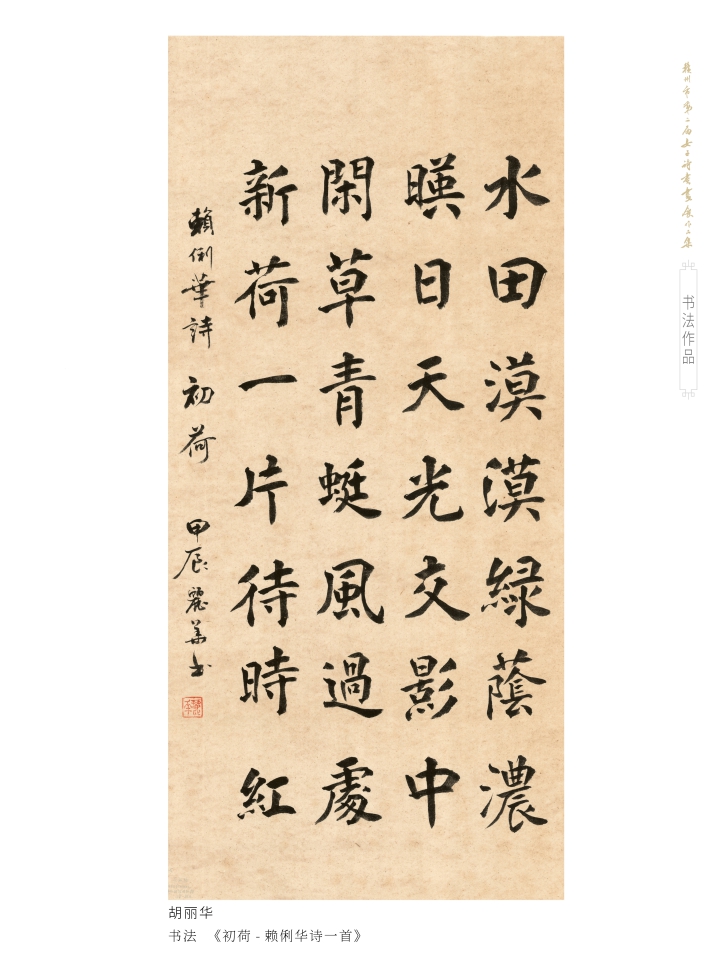 水田漠漠綠蔭濃
暎日天光交影中
閑草青蜓風過處
新荷一片待時紅
賴俐華詩 初荷 甲辰 麗華书
胡丽华
书法 《初荷 - 赖俐华诗一首》
赣州市第二届女子诗书画展作品集
书法作品